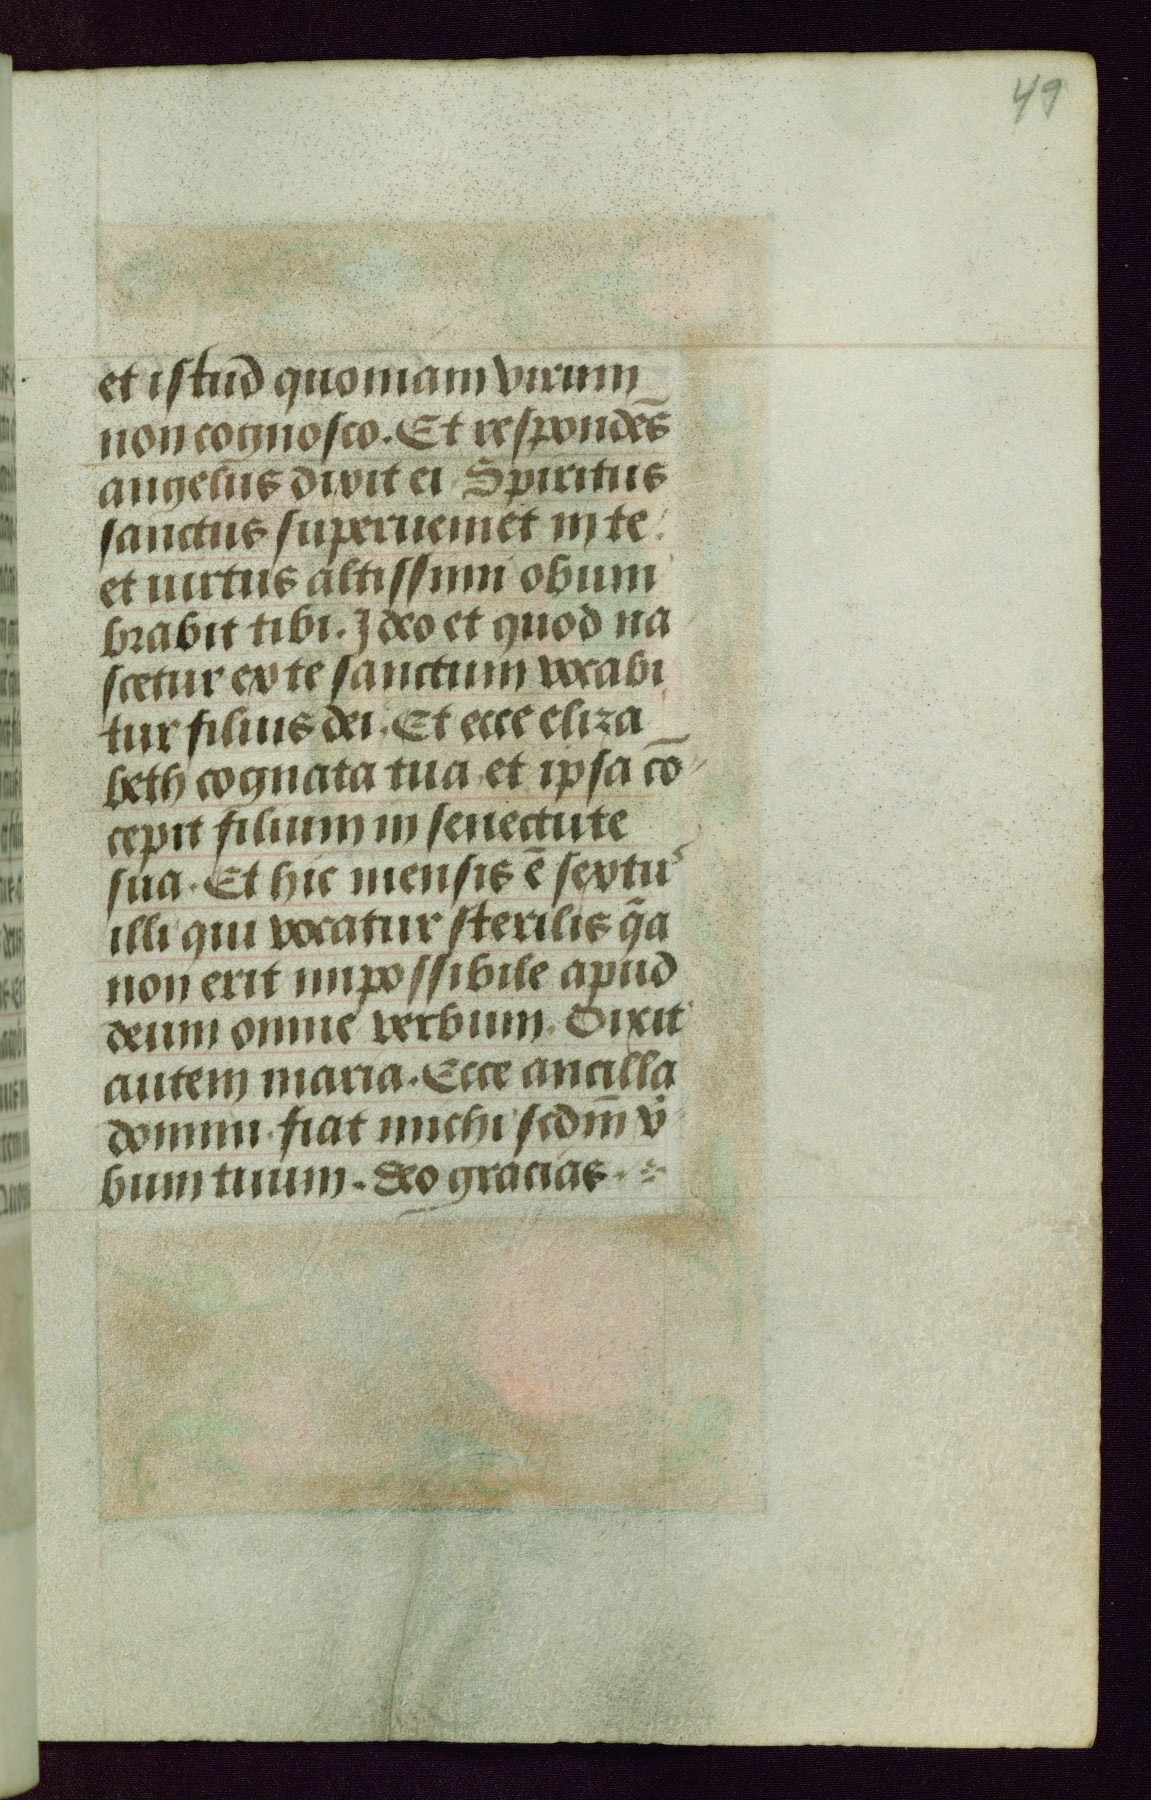 49
et istud quoniam virum
non cognosco. Et respondēs
angelus dixit ei Spiritus
sanctus superueniet in te.
et uirtus altissimi obum
brabit tibi. Ideo et quod na
scetur ex te sanctum vocabi
tur filius dei. Et ecce eliza
beth cognata tua et ipsa cō
cepit filium in senectute
sua. Et hic mensis ē sextuˢ
illi qui vocatur sterilis q̄a
non erit impossibile apud
deum omne verbum. Dixit
autem maria. Ecce ancilla
domini fiat michi scdm̄ v̓
bum tuum. deo gracias.